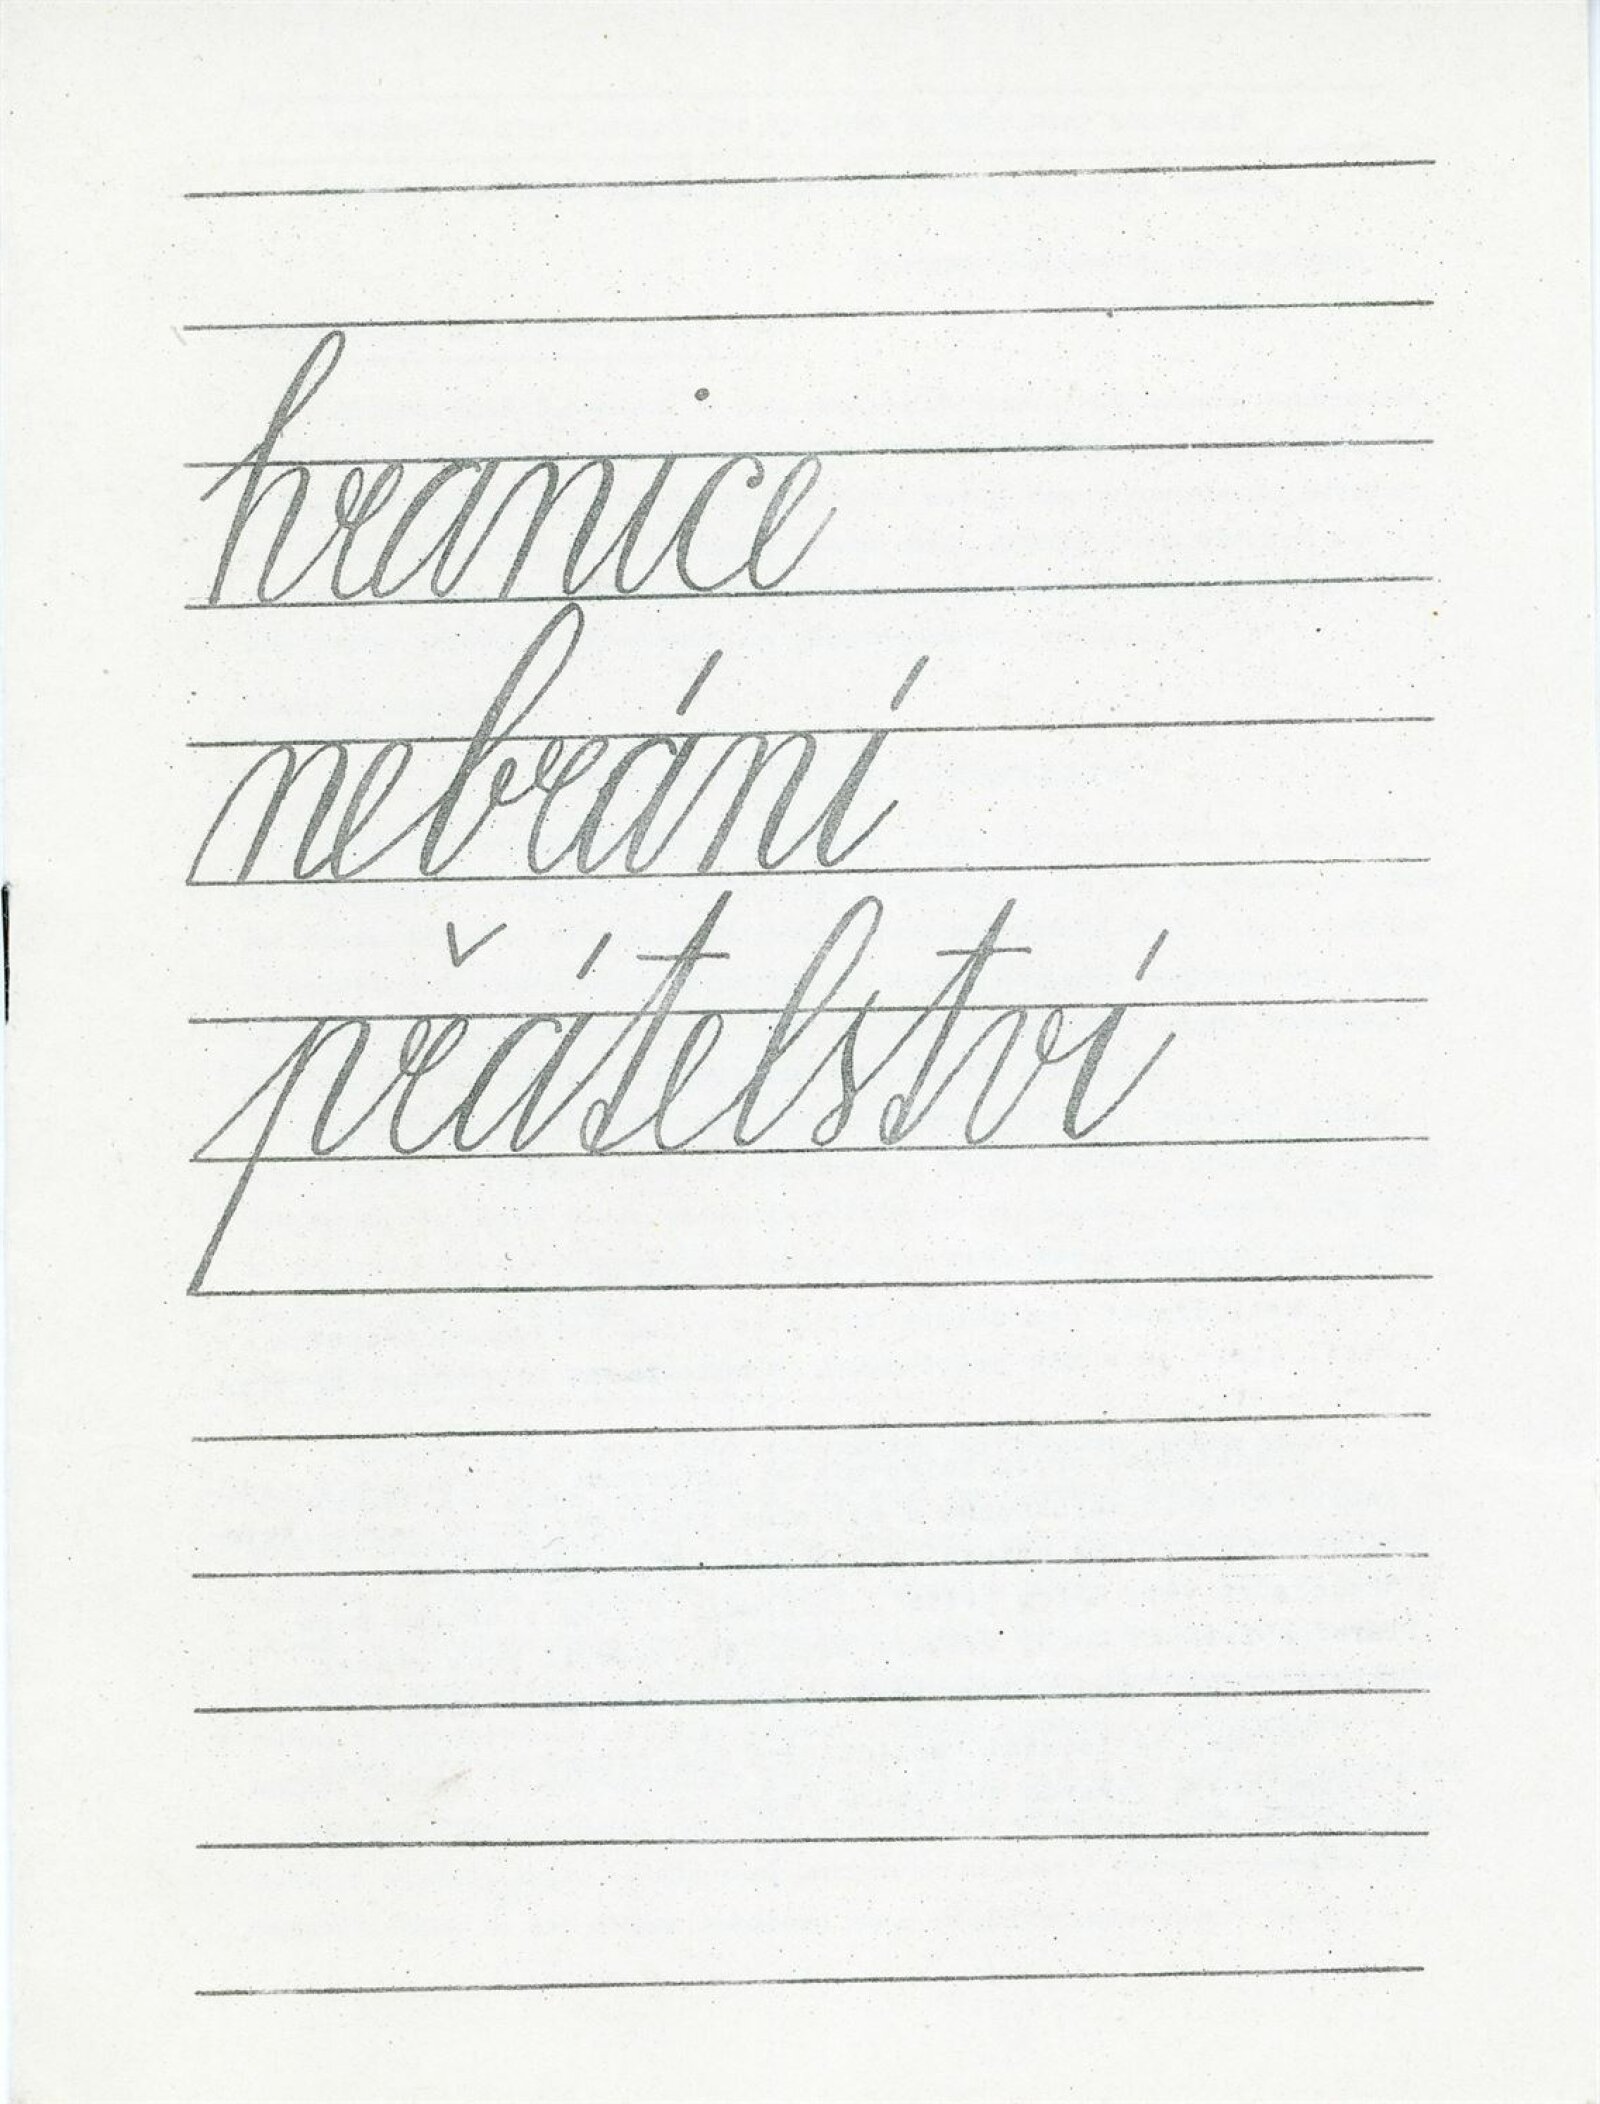 hranice
nebrání
přátelství